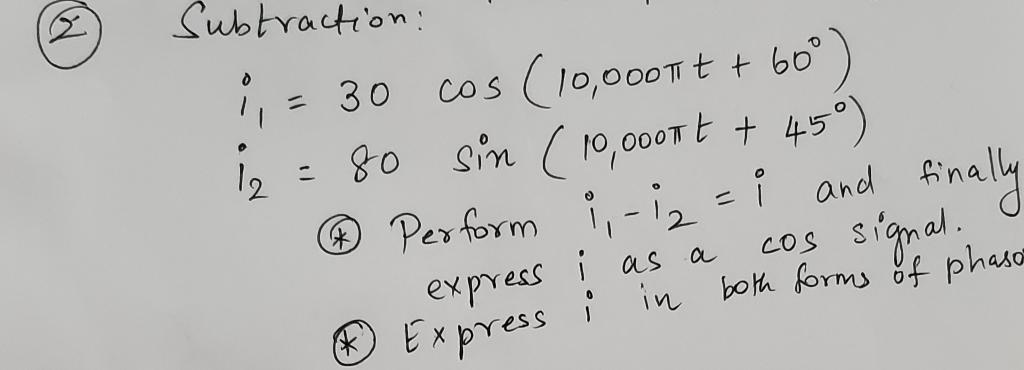 ② Subtraction:
i₁ = 30 cos (10,000πt + 60°)
i₂ = 80 sin (10,000πt + 45°)
⊛ Perform i₁ - i₂ = i and finally
express i as a cos signal.
⊛ Express i in both forms of phaso